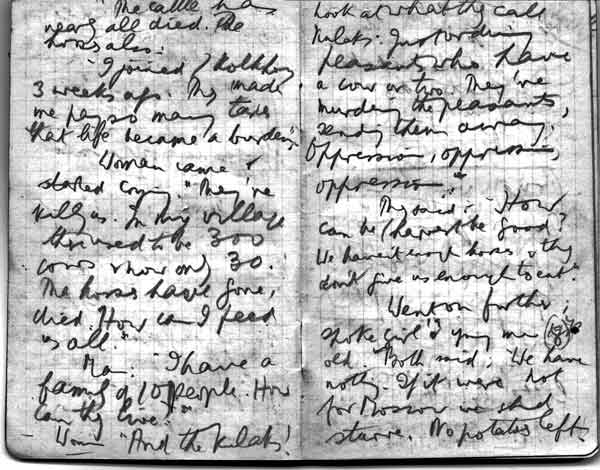 "The cattle has
nearly all died. The
horses also.
"I joined / kolkhoz
3 weeks ago. They made
me pay so many taxes
that life became a burden."
Woman came &
started crying. "They're
killing us. In my village
there used to be 300
cows & now only 30.
The horses have gone,
died. How can I feed
us all."
Man: "I have a
family of 10 people. How
can they live?"
Woman "And the Kulaks!
Look at what they call
Kulaks. Just ordinary
peasants who have
a cow or two. They're
murdering the peasants,
sending them away.
Oppression, oppression,
oppression."
They said:- "How
can the harvest be good?
We haven't enough horses & they
don't give us enough to eat."
Went on further;
spoke girl & young man (18)
old. Both said: "We have
nothing. If it were not
for Moscow we shd
starve. No potatoes left.